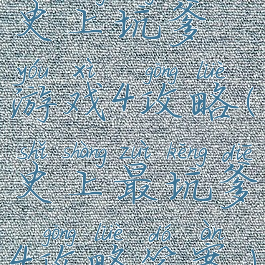 史上坑爹
yóu xì gōng lüè
游戏4攻略(
shǐ shàng zuì kēng diē
史上最坑爹
gōng lüè
4攻略